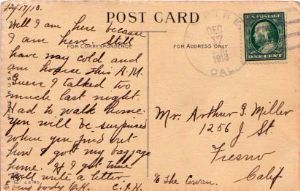 12/17/10.
POST CARD
Well I am here because
I am here. Still
FOR CORRESPONDENCE
FOR ADDRESS ONLY
have my cold and
am hoarse this A.M.
Guess I talked too
much last night.
Had to walk home.
You will be surprised
when you find out
how I got my baggage
home. If I get time
will write a letter.
Everybody O.K. C.A.H.
DEC
17
CAL.
ONE CENT
Mr. Arthur G. Miller
1256 J St
Fresno
Calif